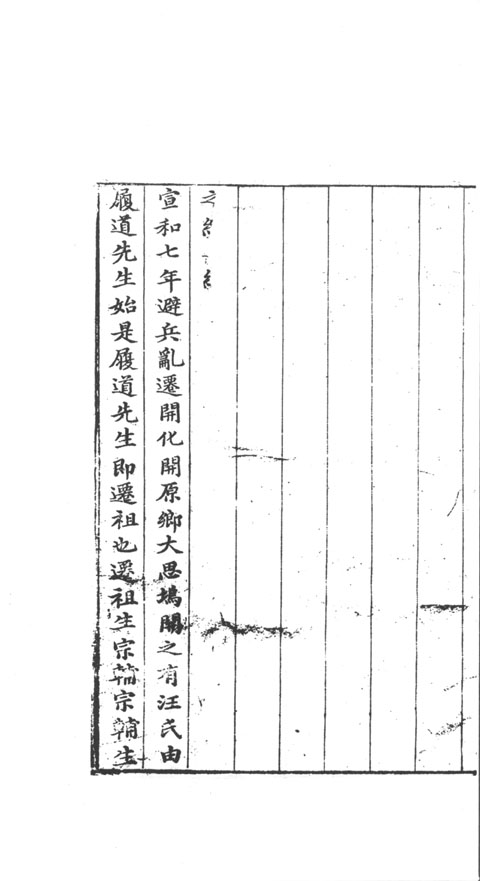 宣和七年避兵亂遷開化開原鄉大思塢開之有汪氏由
履道先生始是履道先生即遷祖也遷祖生宗翰宗輔生